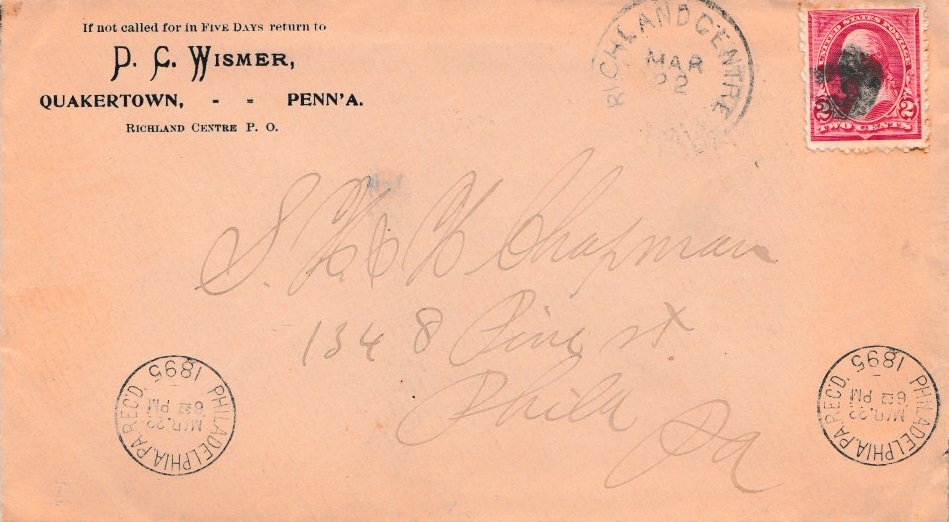 If not called for in FIVE DAYS return to
D. C. WISMER,
QUAKERTOWN, - = PENN'A.
RICHLAND CENTRE P. O.
RICHLAND CENTRE
MAR
22
UNITED STATES POSTAGE
2 2
TWO CENTS
Chapman
1348 Pine st
Phila
Pa
PHILADELPHIA, PA. REC'D.
1895
MAR. 22
6 PM
PHILADELPHIA, PA. REC'D.
1895
MAR. 22
6 PM